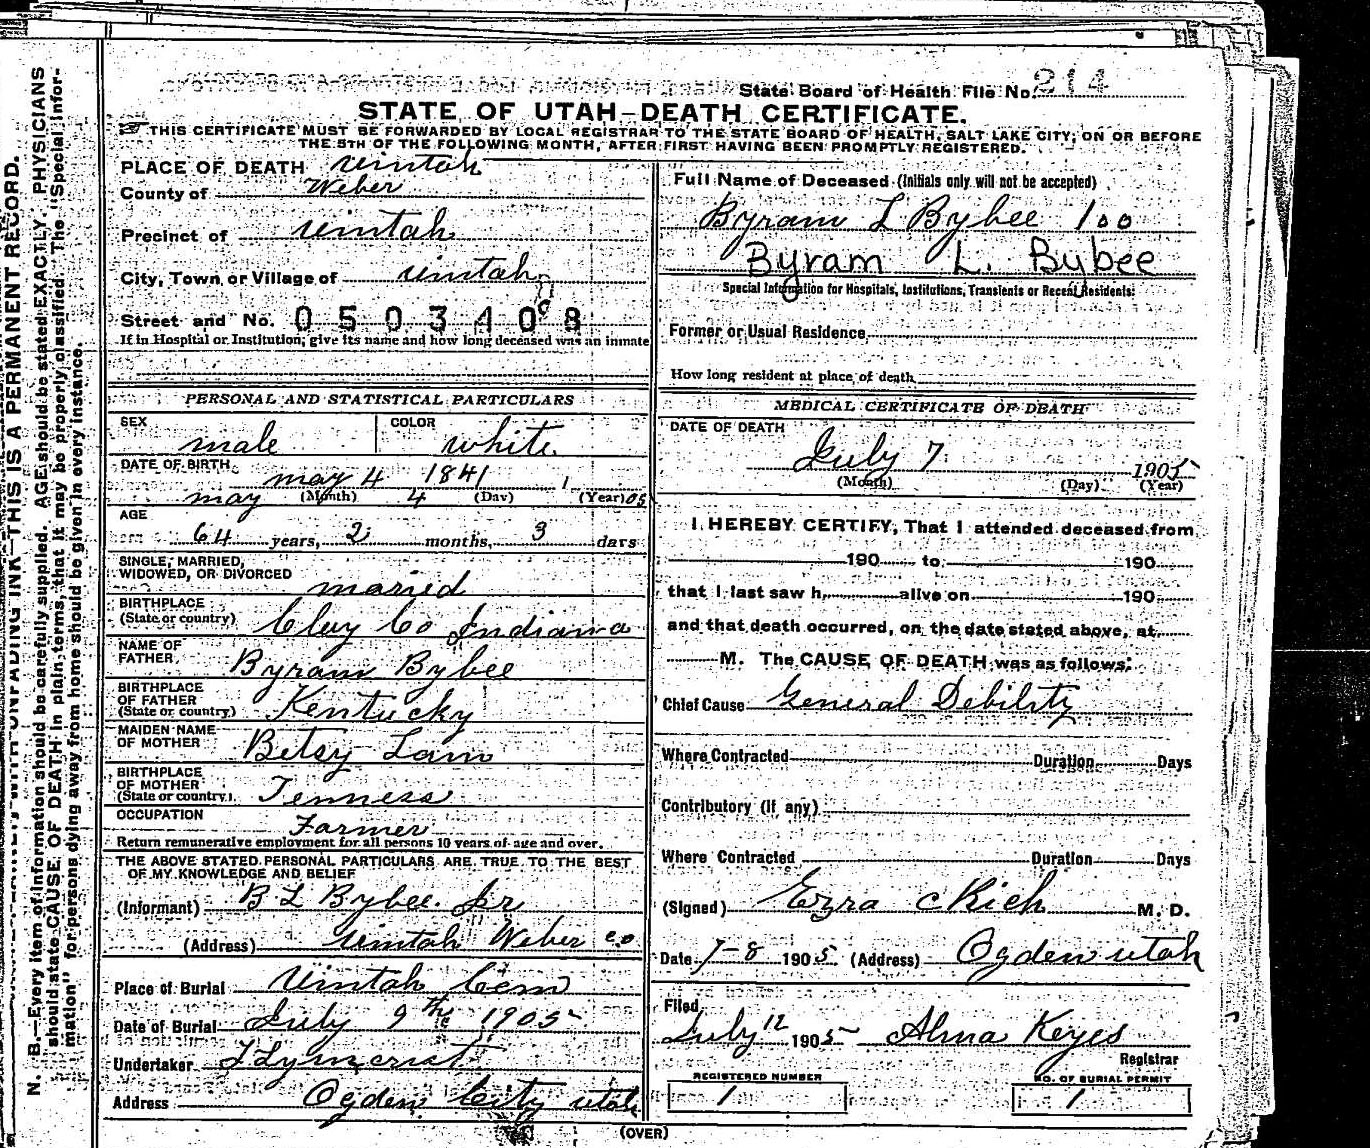 State Board of Health File No. 214
STATE OF UTAH-DEATH CERTIFICATE.
THIS CERTIFICATE MUST BE FORWARDED BY LOCAL REGISTRAR TO THE STATE BOARD OF HEALTH, SALT LAKE CITY, ON OR BEFORE
THE 5TH OF THE FOLLOWING MONTH, AFTER FIRST HAVING BEEN PROMPTLY REGISTERED.
PLACE OF DEATH Uintah
County of Weber
Precinct of Uintah
City, Town or Village of Uintah
Street and No. 0503408
If in Hospital or Institution, give its name and how long deceased was an inmate
PERSONAL AND STATISTICAL PARTICULARS
SEX male COLOR white
DATE OF BIRTH may 4 1841
may (Month) 4 (Day) (Year) 05
AGE 64 years, 2 months, 3 days
SINGLE, MARRIED,
WIDOWED, OR DIVORCED maried
BIRTHPLACE
(State or country) Clay Co Indiana
NAME OF
FATHER Byram Bybee
BIRTHPLACE
OF FATHER
(State or country) Kentucky
MAIDEN NAME
OF MOTHER Betsy Lam
BIRTHPLACE
OF MOTHER
(State or country) Tenness
OCCUPATION Farmer
Return remunerative employment for all persons 10 years of age and over.
THE ABOVE STATED PERSONAL PARTICULARS ARE TRUE TO THE BEST
OF MY KNOWLEDGE AND BELIEF
(Informant) B L Bybee. Jr
(Address) Uintah Weber Co
Place of Burial Uintah Cem
Date of Burial July 9th 1905
Undertaker
Address Ogden City Utah
Full Name of Deceased (Initials only will not be accepted)
Byram L Bybee 100
Byram L. Bybee
Special Information for Hospitals, Institutions, Transients or Recent Residents:
Former or Usual Residence
How long resident at place of death
MEDICAL CERTIFICATE OF DEATH
DATE OF DEATH
July 7 1905
(Month) (Day) (Year)
I HEREBY CERTIFY, That I attended deceased from
190 to 190
that I last saw h alive on 190
and that death occurred, on the date stated above, at
M. The CAUSE OF DEATH was as follows:
Chief Cause General Debility
Where Contracted Duration Days
Contributory (if any)
Where Contracted Duration Days
(Signed) Ezra C Rich M. D.
Date 7-8 1905 (Address) Ogden Utah
Filed
July 12 1905 Alma Keyes
Registrar
REGISTERED NUMBER
1
NO. OF BURIAL PERMIT
1
(OVER)
UNFADING INK—THIS IS A PERMANENT RECORD.
N. B.—Every item of information should be carefully supplied. AGE should be stated EXACTLY. PHYSICIANS
should state CAUSE OF DEATH in plain terms, that it may be properly classified. The "Special Infor-
mation" for persons dying away from home should be given in every instance.